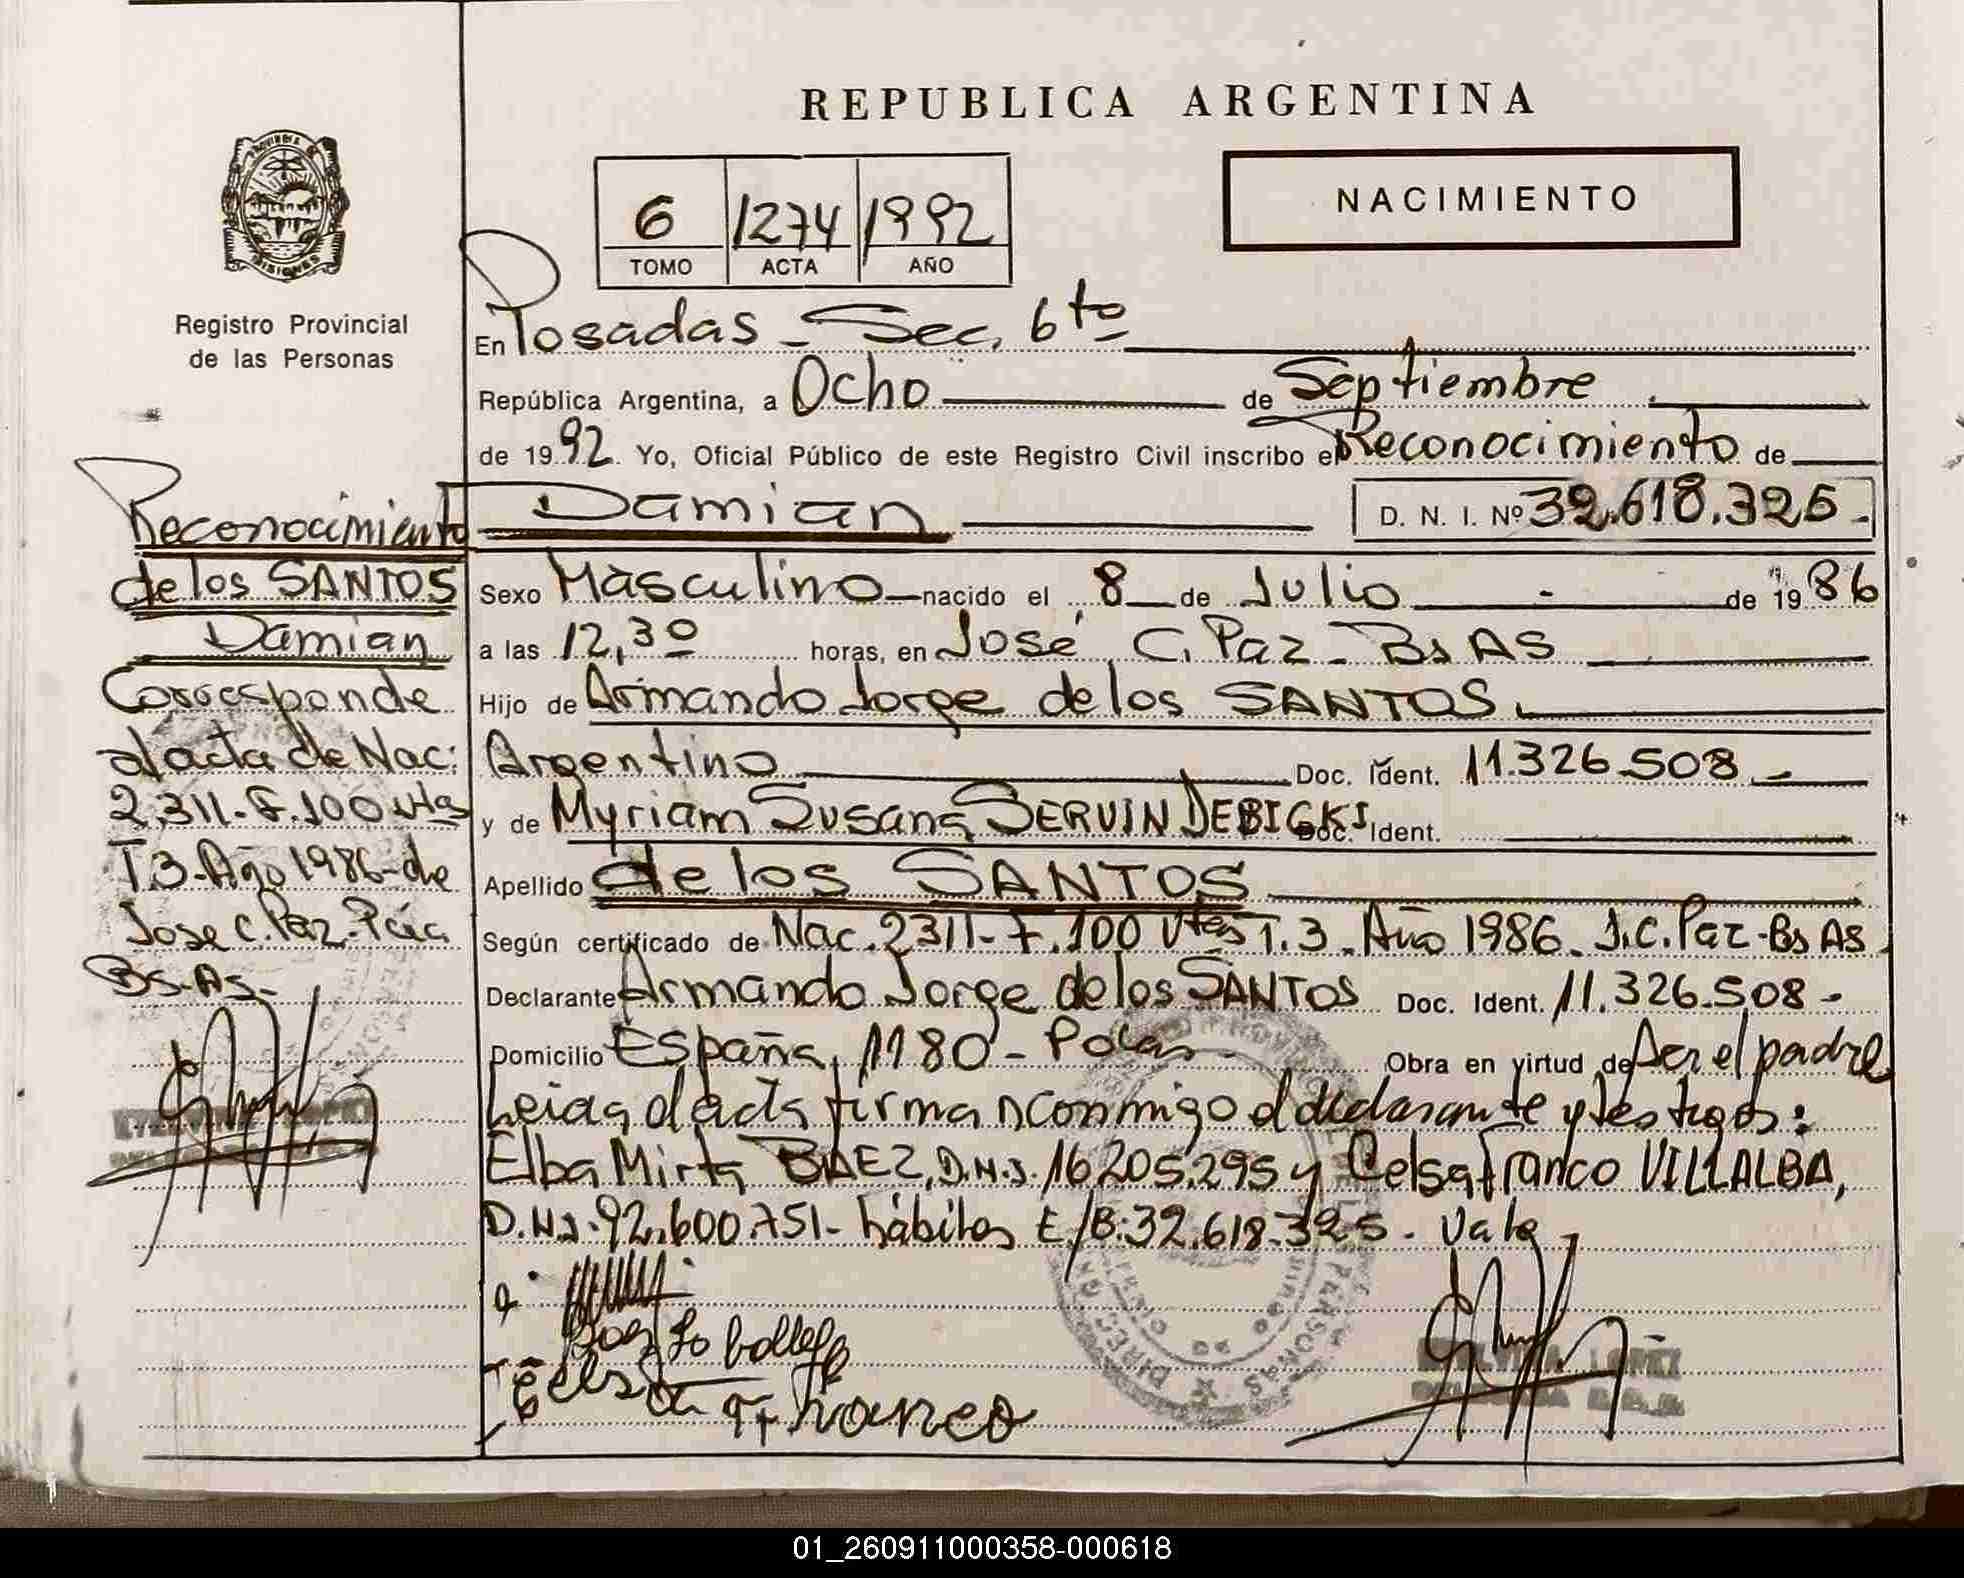 REPUBLICA ARGENTINA
NACIMIENTO
6 1274 1992
TOMO ACTA AÑO
PROVINCIA DE
MISIONES
Registro Provincial
de las Personas
Reconocimiento
de los SANTOS
Damian
Corresponde
al acta de Nac:
2.311-F.100 vta
T.3-Año 1986-de
Jose C. Paz-Pcia
Bs-As-
En Posadas - Sec. 6to
República Argentina, a Ocho de Septiembre
de 1992. Yo, Oficial Público de este Registro Civil inscribo el Reconocimiento de
Damian D. N. I. Nº 32.618.325.-
Sexo Masculino nacido el 8 de Julio - de 1986
a las 12,30 horas, en José C. Paz - Bs AS
Hijo de Armando Jorge de los SANTOS.
Argentino Doc. Ident. 11.326.508 -
y de Myriam Susana SERVIN DEBICKI Doc. Ident.
Apellido de los SANTOS
Según certificado de Nac. 2311-F.100 vtas T.3-Año 1986. J.C. Paz-Bs As.
Declarante Armando Jorge de los SANTOS Doc. Ident. 11.326.508-
Domicilio España, 1180 - Pdas. Obra en virtud de Ser el padre
Leida el acta firman conmigo el declarante y testigos:
Elba Mirta BAEZ, D.N.I. 16.205.295 y Celsa Franco VILLALBA,
D.N.I. 92.600.751- hábiles E/B: 32.618.325. Vale
Celsa Franco
LOPEZ
01_260911000358-000618